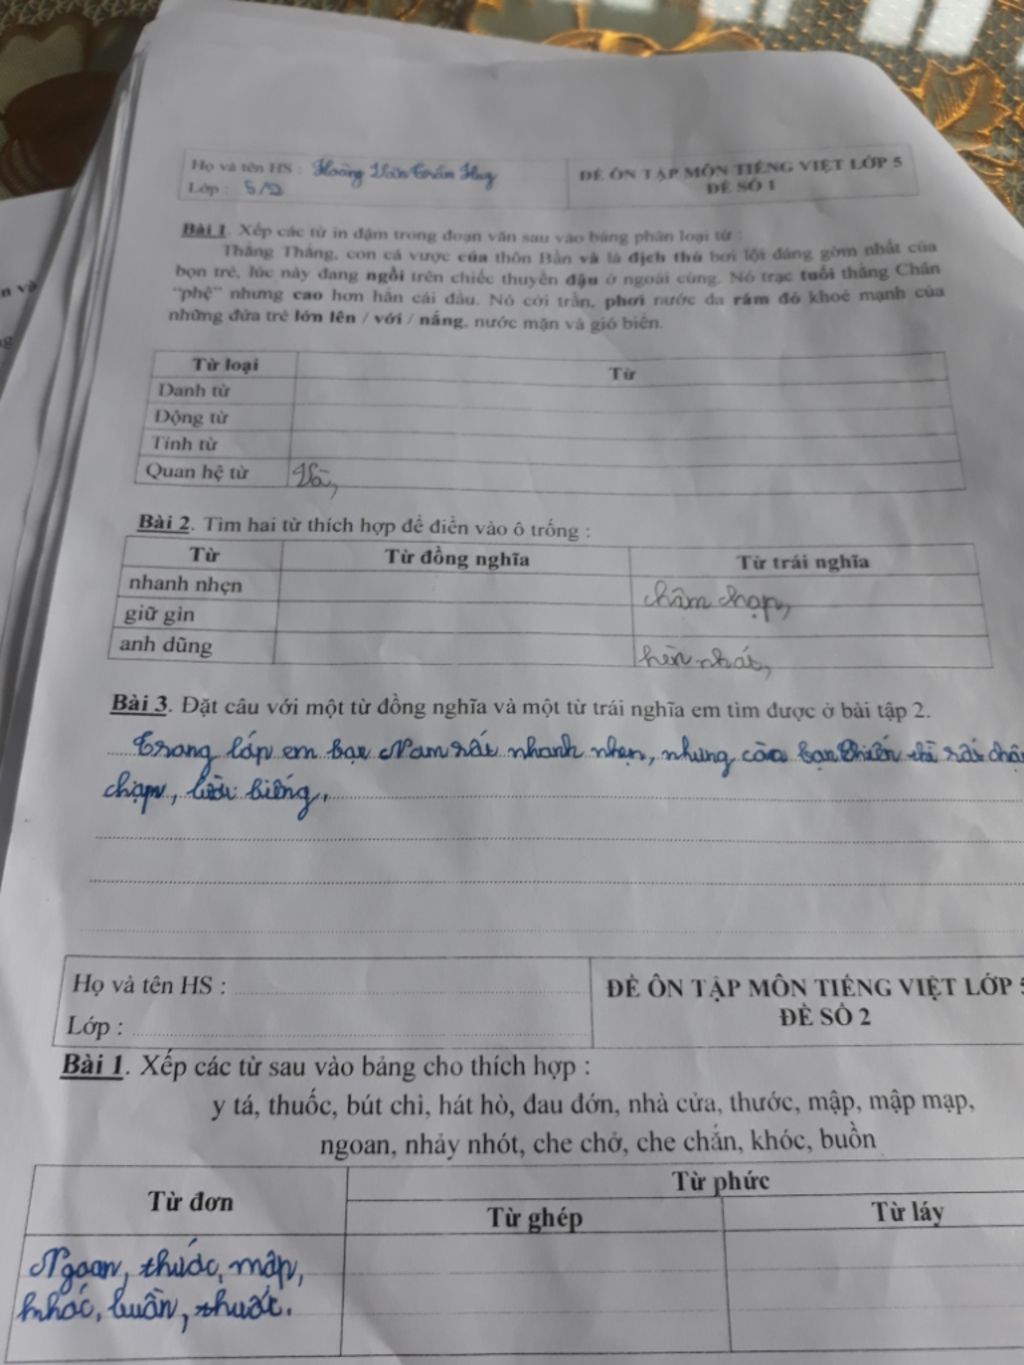 Họ và tên HS : Hoàng Văn Trần Huy
Lớp : 5/2
ĐỀ ÔN TẬP MÔN TIẾNG VIỆT LỚP 5
ĐỀ SỐ 1
Bài 1. Xếp các từ in đậm trong đoạn văn sau vào bảng phân loại từ :
Thắng Thắng, con cá vược của thôn Bần và là địch thủ bơi lội đáng gờm nhất của
bọn trẻ, lúc này đang ngồi trên chiếc thuyền đậu ở ngoài cùng. Nó trạc tuổi thằng Chân
"phệ" nhưng cao hơn hẳn cái đầu. Nó cởi trần, phơi nước da rám đỏ khoẻ mạnh của
những đứa trẻ lớn lên / với / nắng, nước mặn và gió biển.
Từ loại Từ
Danh từ
Động từ
Tính từ
Quan hệ từ Và,
Bài 2. Tìm hai từ thích hợp để điền vào ô trống :
Từ Từ đồng nghĩa Từ trái nghĩa
nhanh nhẹn chậm chạp,
giữ gìn
anh dũng hèn nhát,
Bài 3. Đặt câu với một từ đồng nghĩa và một từ trái nghĩa em tìm được ở bài tập 2.
Trong lớp em bạn Nam rất nhanh nhẹn, nhưng còn bạn thì rất
chạp, lười biếng.
Họ và tên HS :
Lớp :
ĐỀ ÔN TẬP MÔN TIẾNG VIỆT LỚP 5
ĐỀ SỐ 2
Bài 1. Xếp các từ sau vào bảng cho thích hợp :
y tá, thuốc, bút chì, hát hò, đau đớn, nhà cửa, thước, mập, mập mạp,
ngoan, nhảy nhót, che chở, che chắn, khóc, buồn
Từ đơn Từ phức
Từ ghép Từ láy
Ngoan, thước, mập,
khóc, buồn, thuốc.